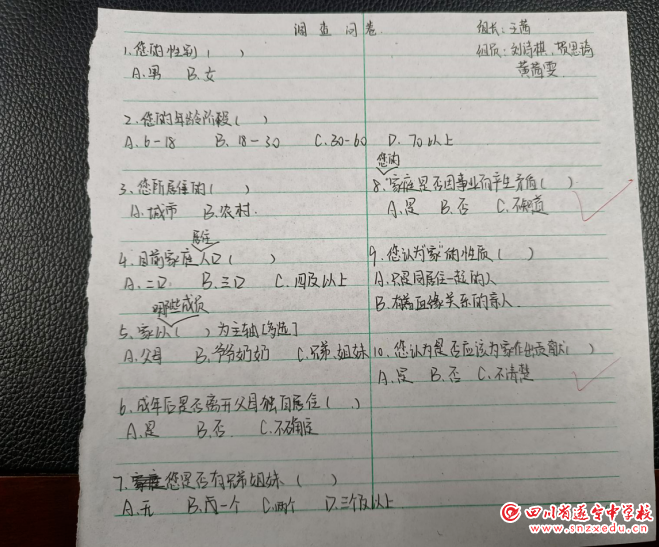 调查问卷
组长:王茜
组员:刘诗棋、
黄茜雯
1.您的性别( )
A.男 B.女
2.您的年龄阶段( )
A.6-18 B.18-30 C.30-60 D.70以上
3.您所居住的( )
A.城市 B.农村.
居住
4.目前家庭人口( )
A.二口 B.三口 C.四及以上
哪些成员
5.家以( )为主轴[多选]
A.父母 B.爷爷奶奶 C.兄弟.姐妹
6.成年后是否离开父母独自居住( )
A.是 B.否 C.不确定
7.您是否有兄弟姐妹( )
A.无 B.一个 C.两个 D.三个及以上
您的
8.家庭是否因事业而产生矛盾( )
A.是 B.否 C.不知道
9.您认为"家"的性质( )
A.只是同居住一起的人
B.有着血缘关系的亲人.
10.您认为是否应该为家作出贡献( )
A.是 B.否 C.不清楚
四川省遂宁中学校
www.snzxedu.cn